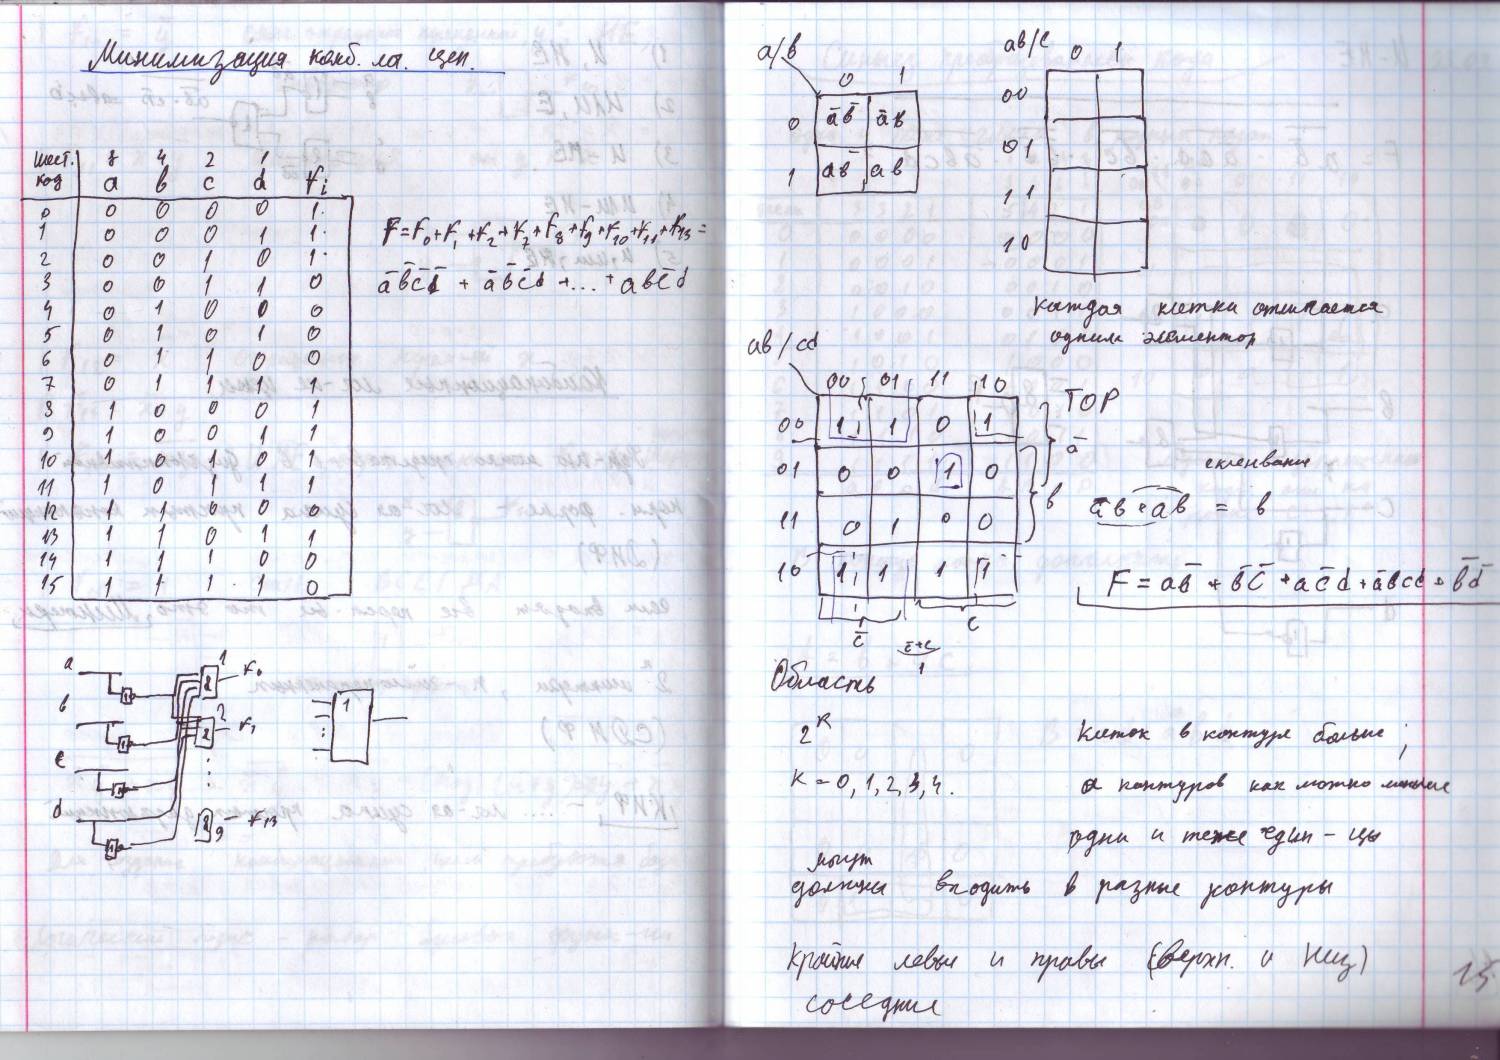 Минимизация комб. ла. цеп.
шест. 8 4 2 1
код a b c d Fi
0 0 0 0 0 1
1 0 0 0 1 1
2 0 0 1 0 1
3 0 0 1 1 0
4 0 1 0 0 0
5 0 1 0 1 0
6 0 1 1 0 0
7 0 1 1 1 1
8 1 0 0 0 1
9 1 0 0 1 1
10 1 0 1 0 1
11 1 0 1 1 1
12 1 1 0 0 0
13 1 1 0 1 1
14 1 1 1 0 0
15 1 1 1 1 0
F=F0+F1+F2+F7+F8+F9+F10+F11+F13=
a̅b̅c̅d̅ + a̅b̅c̅d +...+ abc̅d
a
b
c
d
1
F0
2
F1
9
F13
1
a/b
0 1
0 a̅b̅ a̅b
1 ab̅ ab
ab/c
0 1
00
01
11
10
каждая клетка отличается
одним элементом
ab/cd
00 01 11 10
00 1 1 0 1
01 0 0 1 0
11 0 1 0 0
10 1 1 1 1
TOP
a̅
b
c̅
c
c̅+c
1
склеивание
a̅b+ab = b
F = ab̅ + b̅c̅ + ac̅d + a̅bcd + b̅d̅
Область
2^K
K=0,1,2,3,4.
Клеток в контуре больше;
а контуров как можно меньше
одни и теже един-цы
могут
должны входить в разные контуры
Крайние левые и правые (верхн. и низ)
соседние